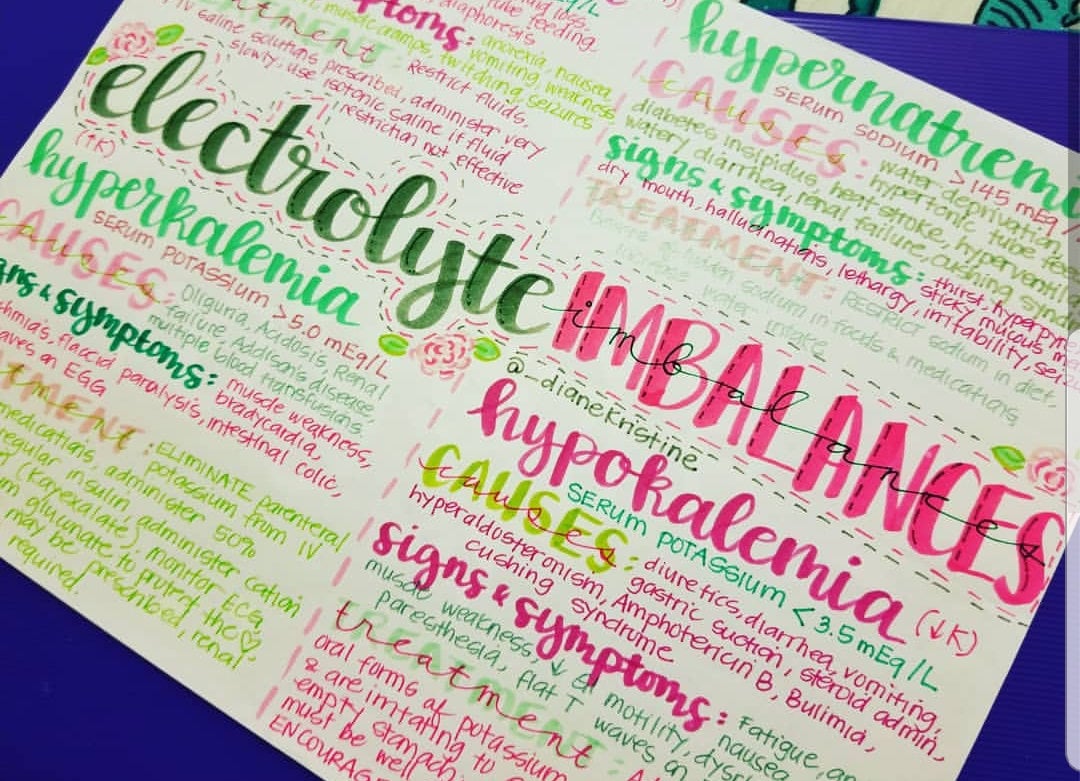 mEq/L
tube feeding
symptoms: anorexia, nausea,
diaphoresis, vomiting, weakness
muscle cramps, twitching, seizures
TREATMENT: Restrict fluids,
IV saline solutions prescribed, administer very
slowly, use isotonic saline if fluid
restriction not effective
electrolyte
IMBALANCES
imbalances
@_dianekristine
hypernatremi
SERUM SODIUM >145 mEq/
CAUSES: water deprivation,
causes
hypertonic tube fee
diabetes insipidus, heat-stroke, hyperventila
watery diarrhea, renal failure, cushing synd
signs & symptoms: thirst, hyperpyre
sticky mucous m
dry mouth, hallucinations, lethargy, irritability, seiz
TREATMENT: RESTRICT sodium in diet,
sodium in foods & medications,
water intake
(↑K)
hyperkalemia
SERUM POTASSIUM >5.0 mEq/L
CAUSES: Oliguria, Acidosis, Renal
causes
failure, Addison's disease,
multiple blood transfusions
gns & symptoms: muscle weakness,
bradycardia,
thmias, flaccid paralysis, intestinal colic,
aves on EGG
TMENT: ELIMINATE parenteral
tment
potassium from IV
medication, administer 50%
regular insulin, administer cation
(Kayexalate), monitor ECG,
m gluconate to protect the ♡
may be prescribed, renal
required
hypokalemia (↓K)
SERUM POTASSIUM <3.5 mEq/L
CAUSES: diuretics, diarrhea, vomiting,
causes
gastric suction, steroid admin,
hyperaldosteronism, Amphotericin B, Bulimia,
cushing syndrome
signs & symptoms: Fatigue, an
nausea
muscle weakness, ↓ GI motility, dysr
paresthesia, flat T waves on
TREATMENT:
treatment
oral forms of potassium
& are irritating to
empty stomach
must be well
ENCOURAGE